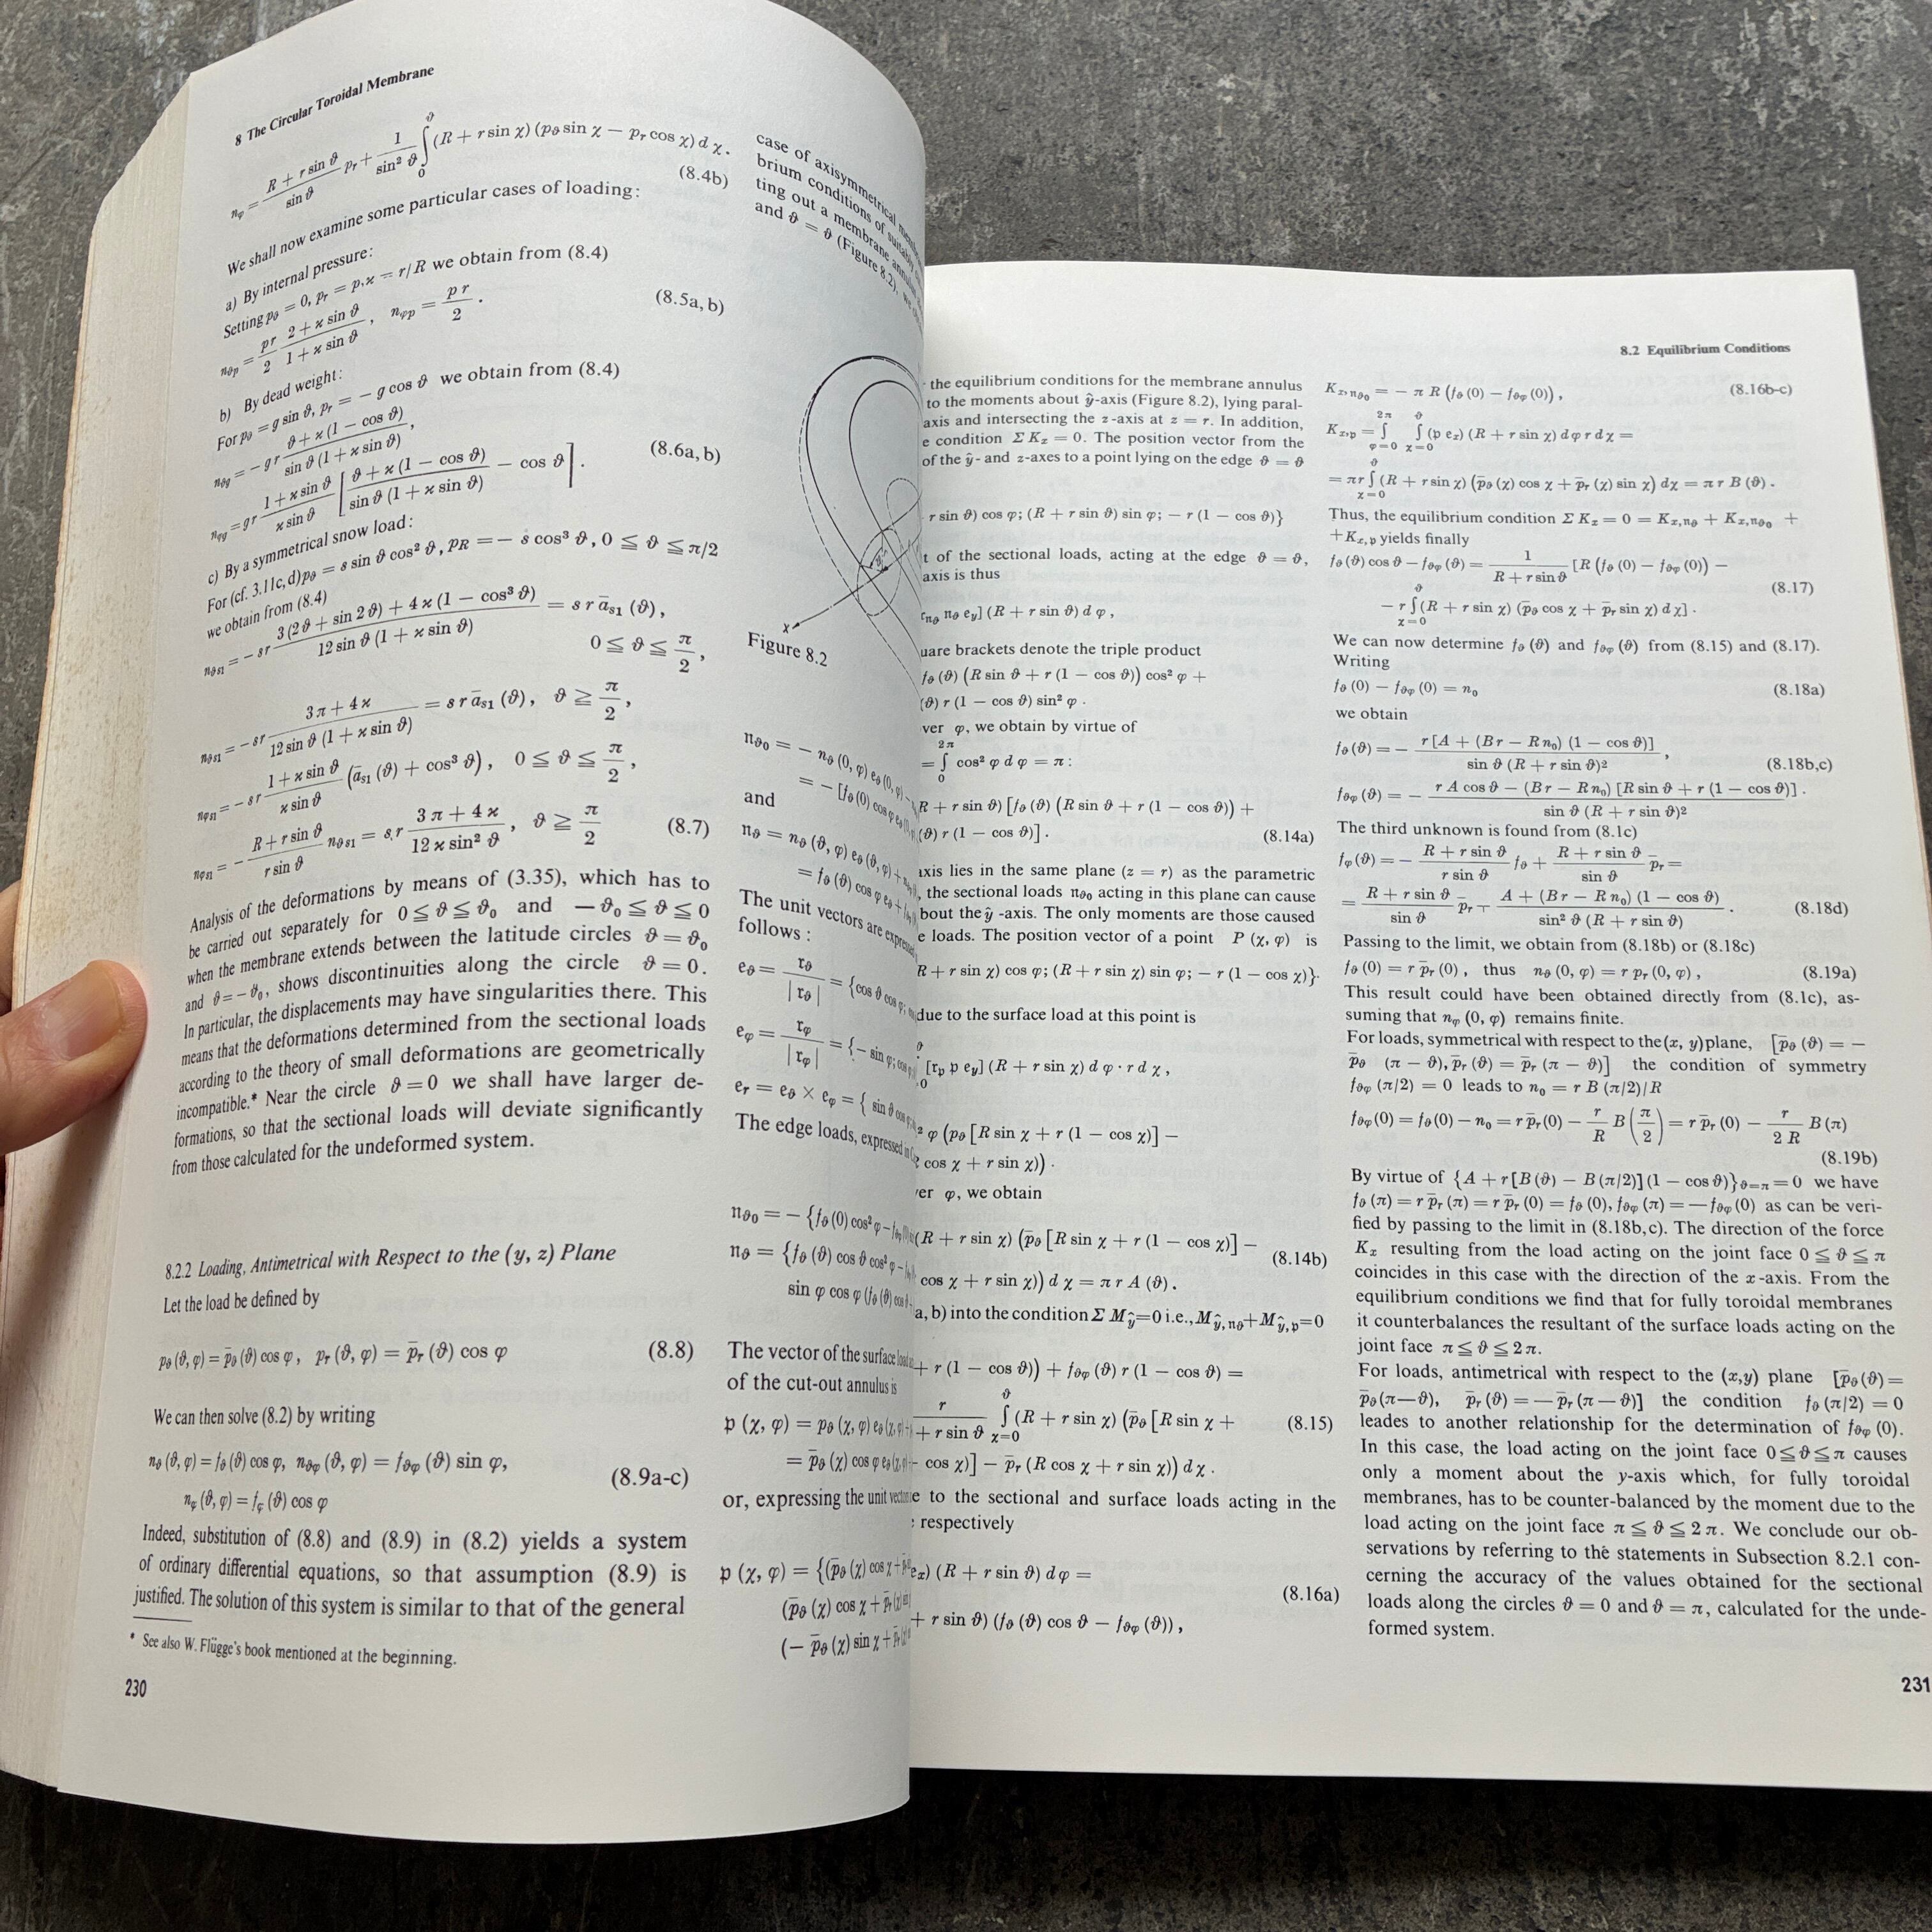 8 The Circular Toroidal Membrane
n_φ = (R + r sin ϑ)/(sin ϑ) p_r + 1/(sin² ϑ) ∫₀^ϑ (R + r sin χ) (p_ϑ sin χ − p_r cos χ) d χ.
(8.4b)
We shall now examine some particular cases of loading:
a) By internal pressure:
Setting p_ϑ = 0, p_r = p, ϰ = r/R we obtain from (8.4)
n_ϑp = (p r)/2 (2 + ϰ sin ϑ)/(1 + ϰ sin ϑ), n_φp = (p r)/2. (8.5a, b)
b) By dead weight:
For p_ϑ = g sin ϑ, p_r = − g cos ϑ we obtain from (8.4)
n_ϑg = − g r (ϑ + ϰ (1 − cos ϑ))/(sin ϑ (1 + ϰ sin ϑ)),
n_φg = g r (1 + ϰ sin ϑ)/(ϰ sin ϑ) [(ϑ + ϰ (1 − cos ϑ))/(sin ϑ (1 + ϰ sin ϑ)) − cos ϑ]. (8.6a, b)
c) By a symmetrical snow load:
For (cf. 3.11c, d) p_ϑ = s sin ϑ cos² ϑ, p_R = − s cos³ ϑ, 0 ≦ ϑ ≦ π/2
we obtain from (8.4)
n_ϑs1 = − s r (3 (2ϑ + sin 2ϑ) + 4ϰ (1 − cos³ ϑ))/(12 sin ϑ (1 + ϰ sin ϑ)) = s r ā_s1 (ϑ),
0 ≦ ϑ ≦ π/2,
n_ϑs1 = − s r (3π + 4ϰ)/(12 sin ϑ (1 + ϰ sin ϑ)) = s r ā_s1 (ϑ), ϑ ≧ π/2,
n_φs1 = − s r (1 + ϰ sin ϑ)/(ϰ sin ϑ) (ā_s1 (ϑ) + cos³ ϑ), 0 ≦ ϑ ≦ π/2,
n_φs1 = − (R + r sin ϑ)/(r sin ϑ) n_ϑs1 = s, r (3π + 4ϰ)/(12 ϰ sin² ϑ), ϑ ≧ π/2 (8.7)
Analysis of the deformations by means of (3.35), which has to
be carried out separately for 0 ≦ ϑ ≦ ϑ₀ and − ϑ₀ ≦ ϑ ≦ 0
when the membrane extends between the latitude circles ϑ = ϑ₀
and ϑ = − ϑ₀, shows discontinuities along the circle ϑ = 0.
In particular, the displacements may have singularities there. This
means that the deformations determined from the sectional loads
according to the theory of small deformations are geometrically
incompatible.* Near the circle ϑ = 0 we shall have larger de-
formations, so that the sectional loads will deviate significantly
from those calculated for the undeformed system.
8.2.2 Loading, Antimetrical with Respect to the (y, z) Plane
Let the load be defined by
p_ϑ (ϑ, φ) = p̄_ϑ (ϑ) cos φ, p_r (ϑ, φ) = p̄_r (ϑ) cos φ (8.8)
We can then solve (8.2) by writing
n_ϑ (ϑ, φ) = f_ϑ (ϑ) cos φ, n_ϑφ (ϑ, φ) = f_ϑφ (ϑ) sin φ,
(8.9a-c)
n_φ (ϑ, φ) = f_φ (ϑ) cos φ
Indeed, substitution of (8.8) and (8.9) in (8.2) yields a system
of ordinary differential equations, so that assumption (8.9) is
justified. The solution of this system is similar to that of the general
* See also W. Flügge's book mentioned at the beginning.
230
case of axisymmetrical
brium conditions of suitably
ting out a membrane annulus
and ϑ = ϑ (Figure 8.2),
x
Figure 8.2
n_ϑ0 = − n_ϑ (0, φ) e_ϑ (0, φ)
= − [f_ϑ (0) cos φ e_ϑ
and
n_ϑ = n_ϑ (ϑ, φ) e_ϑ (ϑ, φ) +
= f_ϑ (ϑ) cos φ e_ϑ +
The unit vectors are expressed
follows :
e_ϑ = r_ϑ/|r_ϑ| = {cos ϑ cos φ;
e_φ = r_φ/|r_φ| = {− sin φ; cos φ
e_r = e_ϑ × e_φ = { sin ϑ cos
The edge loads, expressed in
n_ϑ0 = − {f_ϑ (0) cos² φ −
n_ϑ = {f_ϑ (ϑ) cos ϑ cos² φ −
sin φ cos φ (f_ϑ (ϑ) cos ϑ
The vector of the surface
of the cut-out annulus is
p (χ, φ) = p_ϑ (χ, φ) e_ϑ (χ, φ) +
= p̄_ϑ (χ) cos φ e_ϑ (χ, φ)
or, expressing the unit
p (χ, φ) = {(p̄_ϑ (χ) cos χ +
(p̄_ϑ (χ) cos χ + p̄_r (χ)
(− p̄_ϑ (χ) sin χ +
the equilibrium conditions for the membrane annulus
to the moments about ŷ-axis (Figure 8.2), lying paral-
axis and intersecting the z-axis at z = r. In addition,
condition Σ K_x = 0. The position vector from the
of the ŷ- and z-axes to a point lying on the edge ϑ = ϑ
r sin ϑ) cos φ; (R + r sin ϑ) sin φ; − r (1 − cos ϑ)}
of the sectional loads, acting at the edge ϑ = ϑ,
axis is thus
[r_nϑ n_ϑ e_y] (R + r sin ϑ) d φ,
brackets denote the triple product
f_ϑ (ϑ) (R sin ϑ + r (1 − cos ϑ)) cos² φ +
(ϑ) r (1 − cos ϑ) sin² φ.
φ, we obtain by virtue of
= ∫₀^2π cos² φ d φ = π :
R + r sin ϑ) [f_ϑ (ϑ) (R sin ϑ + r (1 − cos ϑ)) +
(ϑ) r (1 − cos ϑ)]. (8.14a)
axis lies in the same plane (z = r) as the parametric
, the sectional loads n_ϑ0 acting in this plane can cause
the ŷ-axis. The only moments are those caused
loads. The position vector of a point P (χ, φ) is
R + r sin χ) cos φ; (R + r sin χ) sin φ; − r (1 − cos χ)}.
due to the surface load at this point is
[r_p p e_y] (R + r sin χ) d φ · r d χ,
φ (p_ϑ [R sin χ + r (1 − cos χ)] −
cos χ + r sin χ)).
φ, we obtain
(R + r sin χ) (p̄_ϑ [R sin χ + r (1 − cos χ)] −
(8.14b)
cos χ + r sin χ)) d χ = π r A (ϑ).
a, b) into the condition Σ M_ŷ = 0 i.e., M_ŷ,nϑ + M_ŷ,p = 0
+ r (1 − cos ϑ)) + f_ϑφ (ϑ) r (1 − cos ϑ) =
r/(+ r sin ϑ) ∫_χ=0^ϑ (R + r sin χ) (p̄_ϑ [R sin χ + (8.15)
− cos χ)] − p̄_r (R cos χ + r sin χ)) d χ.
to the sectional and surface loads acting in the
respectively
e_x) (R + r sin ϑ) d φ =
(8.16a)
+ r sin ϑ) (f_ϑ (ϑ) cos ϑ − f_ϑφ (ϑ)),
8.2 Equilibrium Conditions
K_x,nϑ0 = − π R (f_ϑ (0) − f_ϑφ (0)), (8.16b-c)
K_x,p = ∫_φ=0^2π ∫_χ=0^ϑ (p e_x) (R + r sin χ) d φ r d χ =
= π r ∫_χ=0^ϑ (R + r sin χ) (p̄_ϑ (χ) cos χ + p̄_r (χ) sin χ) dχ = π r B (ϑ).
Thus, the equilibrium condition Σ K_x = 0 = K_x,nϑ + K_x,nϑ0 +
+ K_x,p yields finally
f_ϑ (ϑ) cos ϑ − f_ϑφ (ϑ) = 1/(R + r sin ϑ) [R (f_ϑ (0) − f_ϑφ (0)) −
(8.17)
− r ∫_χ=0^ϑ (R + r sin χ) (p̄_ϑ cos χ + p̄_r sin χ) d χ].
We can now determine f_ϑ (ϑ) and f_ϑφ (ϑ) from (8.15) and (8.17).
Writing
f_ϑ (0) − f_ϑφ (0) = n₀ (8.18a)
we obtain
f_ϑ (ϑ) = − r [A + (Br − R n₀) (1 − cos ϑ)]/(sin ϑ (R + r sin ϑ)²),
(8.18b,c)
f_ϑφ (ϑ) = − (r A cos ϑ − (Br − R n₀) [R sin ϑ + r (1 − cos ϑ)])/(sin ϑ (R + r sin ϑ)²).
The third unknown is found from (8.1c)
f_φ (ϑ) = − (R + r sin ϑ)/(r sin ϑ) f_ϑ + (R + r sin ϑ)/(sin ϑ) p̄_r =
= (R + r sin ϑ)/(sin ϑ) p̄_r + (A + (Br − R n₀) (1 − cos ϑ))/(sin² ϑ (R + r sin ϑ)). (8.18d)
Passing to the limit, we obtain from (8.18b) or (8.18c)
f_ϑ (0) = r p̄_r (0), thus n_ϑ (0, φ) = r p_r (0, φ), (8.19a)
This result could have been obtained directly from (8.1c), as-
suming that n_φ (0, φ) remains finite.
For loads, symmetrical with respect to the (x, y) plane, [p̄_ϑ (ϑ) = −
p̄_ϑ (π − ϑ), p̄_r (ϑ) = p̄_r (π − ϑ)] the condition of symmetry
f_ϑφ (π/2) = 0 leads to n₀ = r B (π/2)/R
f_ϑφ (0) = f_ϑ (0) − n₀ = r p̄_r (0) − r/R B (π/2) = r p̄_r (0) − r/(2 R) B (π)
(8.19b)
By virtue of {A + r [B (ϑ) − B (π/2)] (1 − cos ϑ)}_ϑ=π = 0 we have
f_ϑ (π) = r p̄_r (π) = r p̄_r (0) = f_ϑ (0), f_ϑφ (π) = − f_ϑφ (0) as can be veri-
fied by passing to the limit in (8.18b,c). The direction of the force
K_x resulting from the load acting on the joint face 0 ≦ ϑ ≦ π
coincides in this case with the direction of the x-axis. From the
equilibrium conditions we find that for fully toroidal membranes
it counterbalances the resultant of the surface loads acting on the
joint face π ≦ ϑ ≦ 2 π.
For loads, antimetrical with respect to the (x,y) plane [p̄_ϑ (ϑ) =
p̄_ϑ (π − ϑ), p̄_r (ϑ) = − p̄_r (π − ϑ)] the condition f_ϑ (π/2) = 0
leades to another relationship for the determination of f_ϑφ (0).
In this case, the load acting on the joint face 0 ≦ ϑ ≦ π causes
only a moment about the y-axis which, for fully toroidal
membranes, has to be counter-balanced by the moment due to the
load acting on the joint face π ≦ ϑ ≦ 2 π. We conclude our ob-
servations by referring to the statements in Subsection 8.2.1 con-
cerning the accuracy of the values obtained for the sectional
loads along the circles ϑ = 0 and ϑ = π, calculated for the unde-
formed system.
231